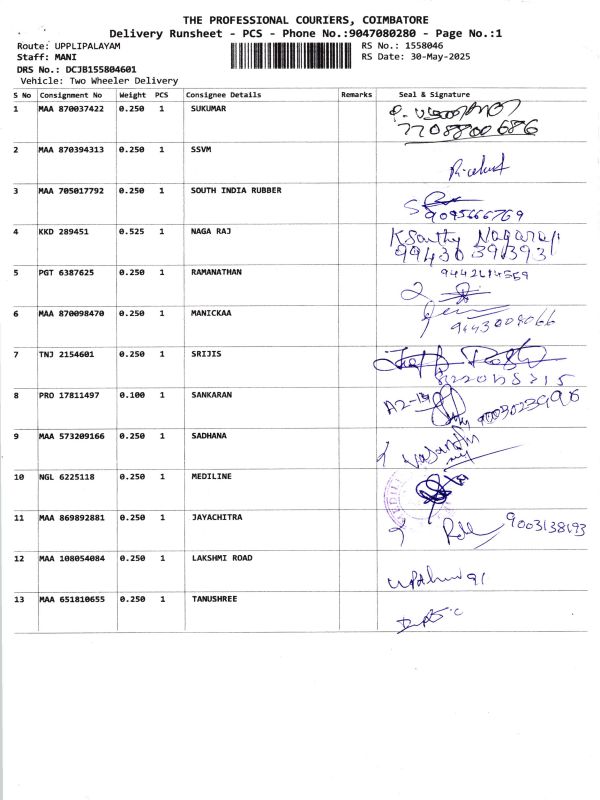 THE PROFESSIONAL COURIERS, COIMBATORE
Delivery Runsheet - PCS - Phone No.:9047080280 - Page No.:1
Route: UPPLIPALAYAM RS No.: 1558046
Staff: MANI RS Date: 30-May-2025
DRS No.: DCJB155804601
Vehicle: Two Wheeler Delivery
S No Consignment No Weight PCS Consignee Details Remarks Seal & Signature
1 MAA 870037422 0.250 1 SUKUMAR
7708800686
2 MAA 870394313 0.250 1 SSVM
3 MAA 705017792 0.250 1 SOUTH INDIA RUBBER
9095666769
4 KKD 289451 0.525 1 NAGA RAJ K Santhy Nagaraj
9943039393
5 PGT 6387625 0.250 1 RAMANATHAN
6 MAA 870098470 0.250 1 MANICKAA
7 TNJ 2154601 0.250 1 SRIJIS
8 PRO 17811497 0.100 1 SANKARAN
9 MAA 573209166 0.250 1 SADHANA Vasanthi
10 NGL 6225118 0.250 1 MEDILINE
11 MAA 869892881 0.250 1 JAYACHITRA
12 MAA 108054084 0.250 1 LAKSHMI ROAD
13 MAA 651810655 0.250 1 TANUSHREE